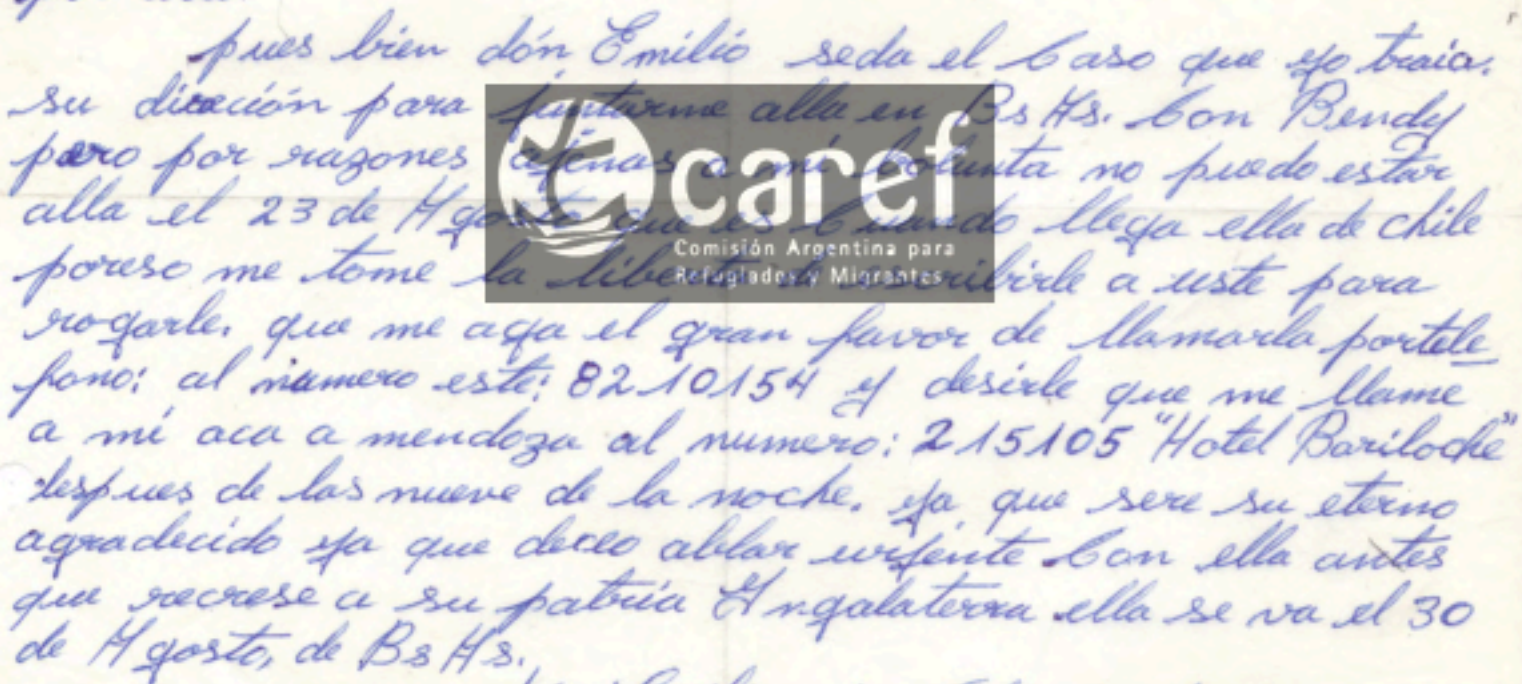 pues bien dón Emilio seda el Caso que yo traia.
su dirección para juntarme alla en Bs As. Con Bendy
pero por razones ajenas a mi bolunta no puedo estar
alla el 23 de Agosto que es Cuando llega ella de chile
poreso me tome la libertad escribirle a uste para
rogarle. que me aga el gran favor de llamarla portele
fono: al numero este: 8210154 y desirle que me llame
a mi aca a mendoza al numero: 215105 "Hotel Bariloche"
despues de las nueve de la noche. ya que sere su eterno
agradecido ya que deceo ablar urjente Con ella antes
que recrese a su patria Angalaterra ella se va el 30
de Agosto, de Bs As.
caref
Comisión Argentina para
Refugiados y Migrantes